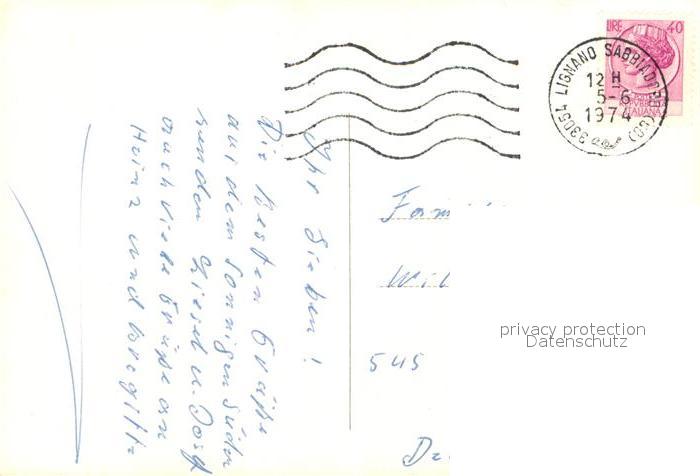 Ihr Lieben!
Die besten Grüße
aus dem sonnigen Süden
senden Gisel u. Josef
auch viele Grüße an
Heinz und Brigitte
LIRE 40
33054 LIGNANO SABBIADORO (UD)
12 H
5-6
1974
ITALIANA
Fam
545
privacy protection
Datenschutz